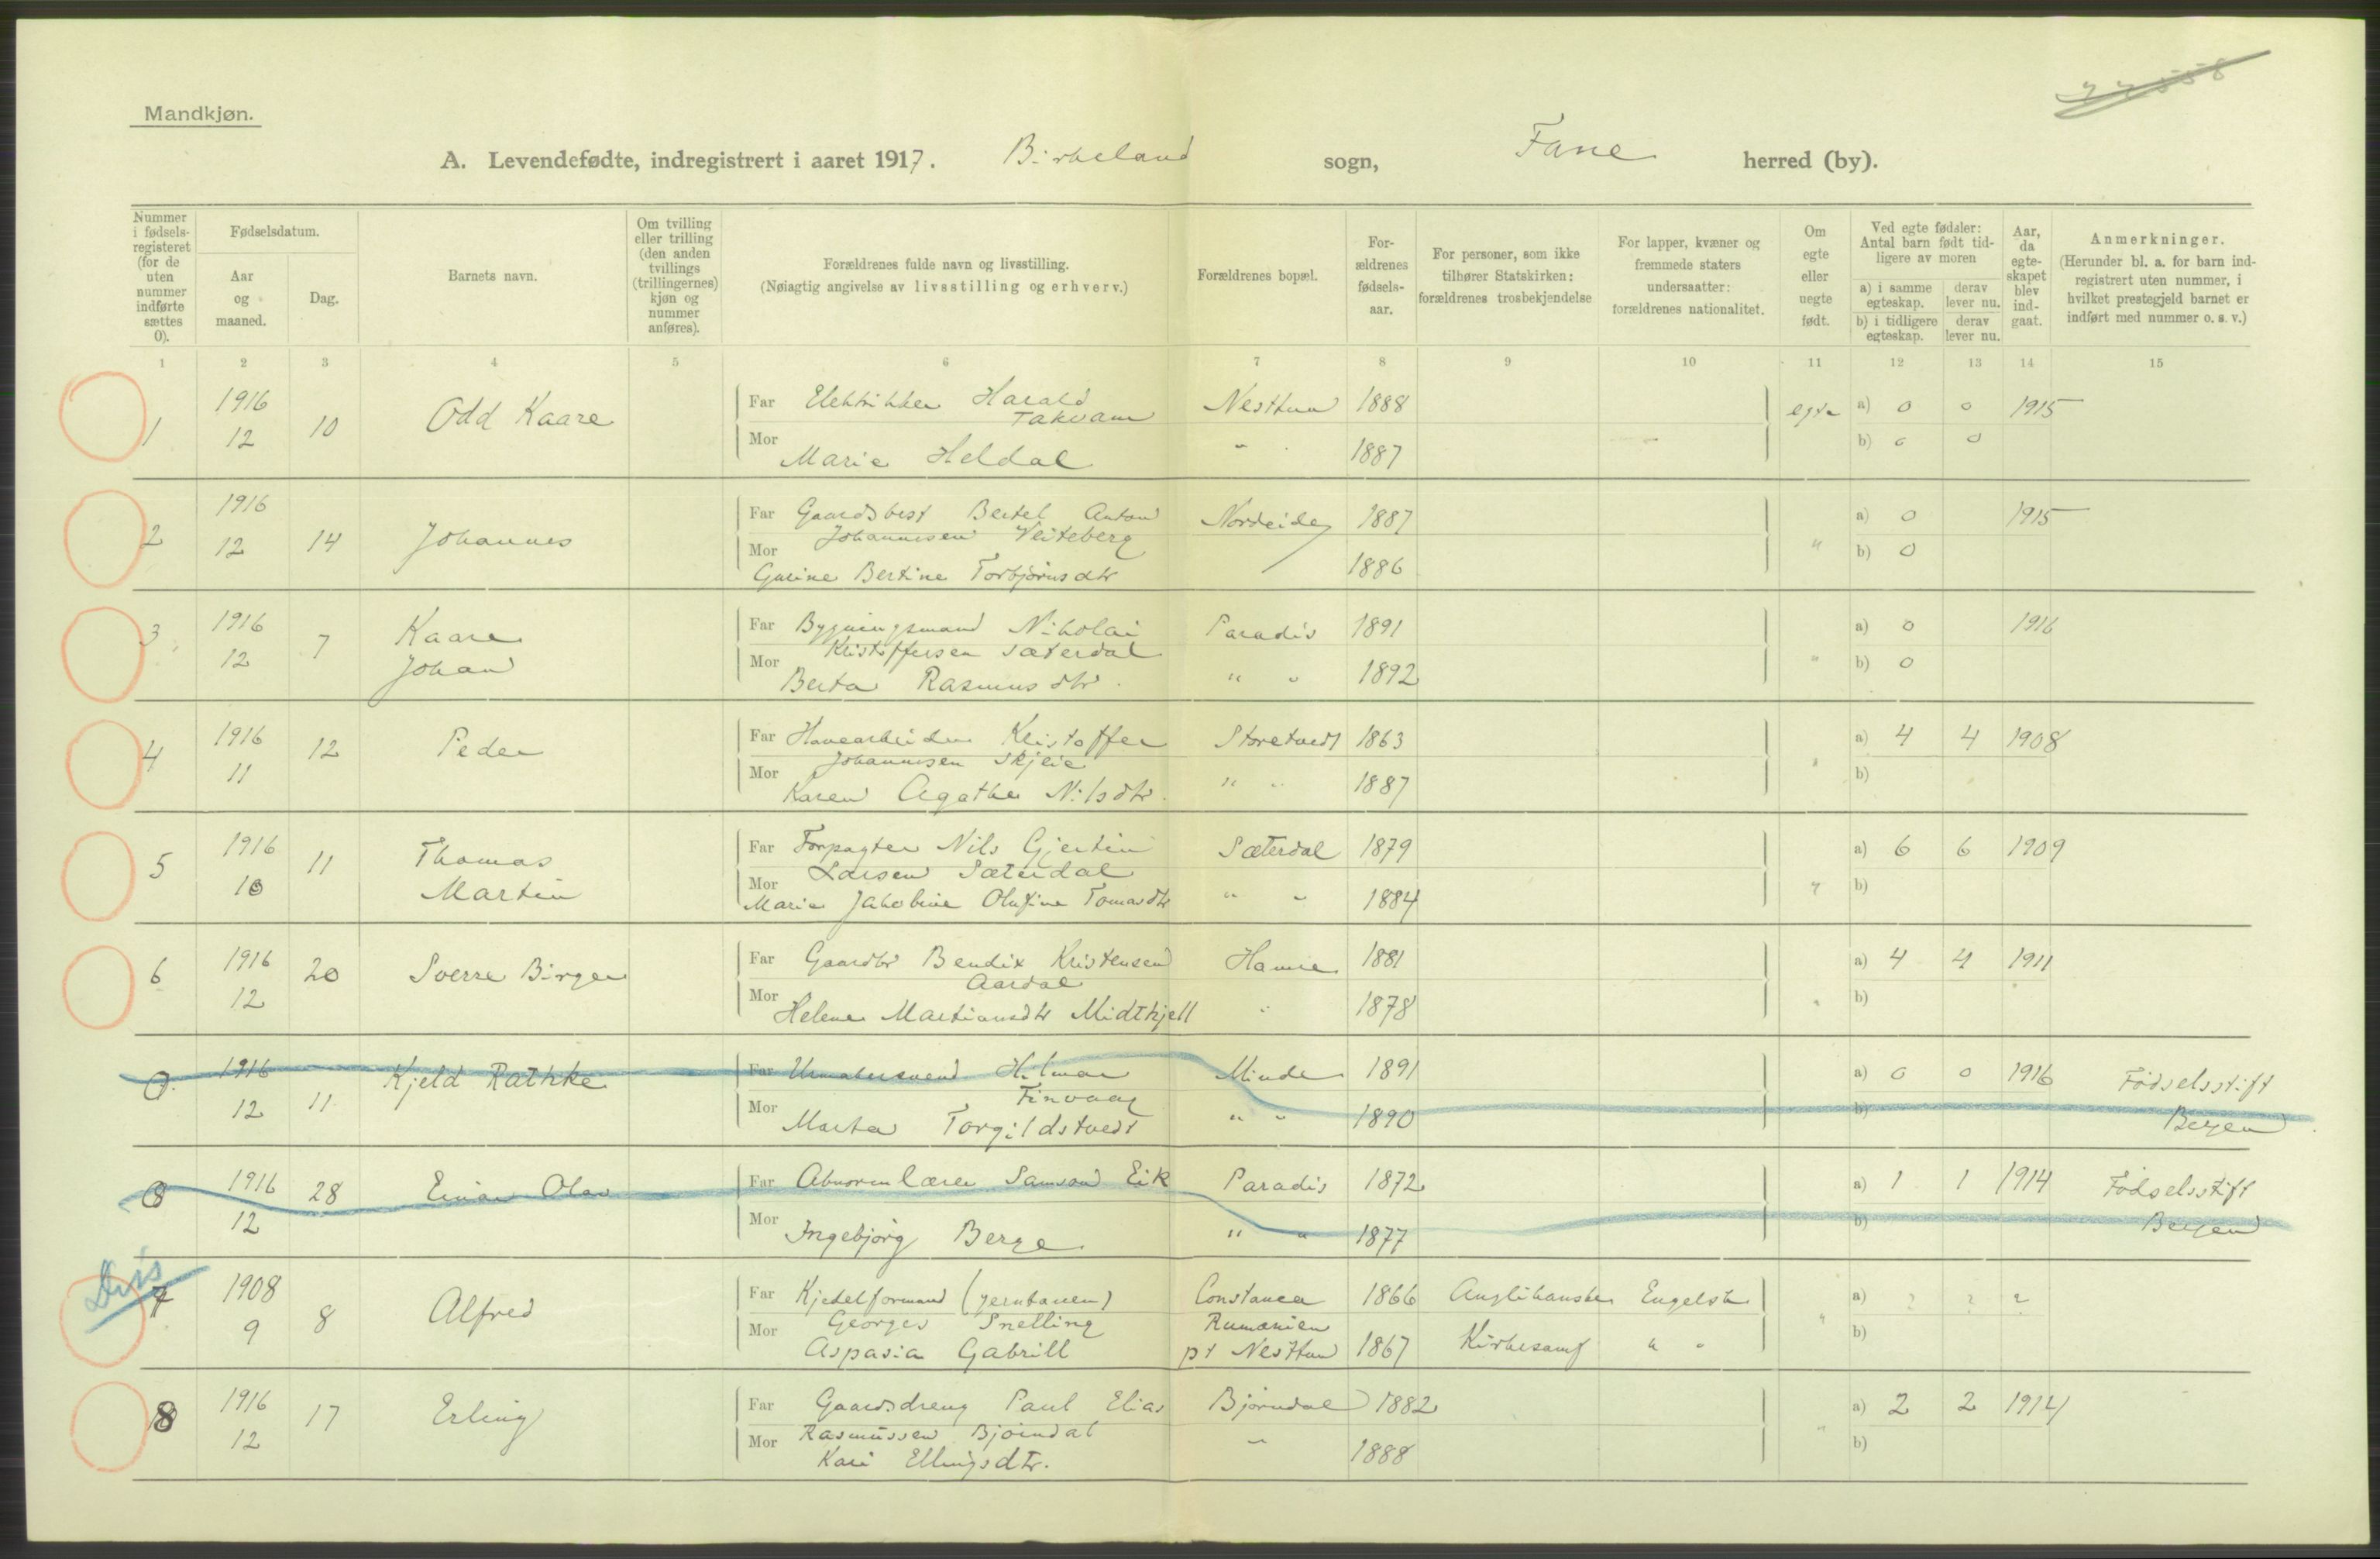 77558
Mandkjøn.
A. Levendefødte, indregistrert i aaret 1917. Birkeland sogn, Fane herred (by).
Nummer i fødsels-registeret (for de uten nummer indførte sættes 0).
Fødselsdatum.
Aar og maaned.
Dag.
Barnets navn.
Om tvilling eller trilling (den anden tvillings (trillingernes) kjøn og nummer anføres).
Forældrenes fulde navn og livsstilling.
(Nøiagtig angivelse av livsstilling og erhverv.)
Forældrenes bopæl.
For-ældrenes fødsels-aar.
For personer, som ikke tilhører Statskirken: forældrenes trosbekjendelse
For lapper, kvæner og fremmede staters undersaatter: forældrenes nationalitet.
Om egte eller uegte født.
Ved egte fødsler: Antal barn født tid-ligere av moren
a) i samme egteskap. derav lever nu.
b) i tidligere egteskap. derav lever nu.
Aar, da egte-skapet blev ind-gaat.
Anmerkninger.
(Herunder bl. a. for barn ind-registrert uten nummer, i hvilket prestegjeld barnet er indført med nummer o. s. v.)
1 2 3 4 5 6 7 8 9 10 11 12 13 14 15
1 1916 12 10 Odd Kaare
Far Elektriker Harald Takvam Nesttun 1888 egte a) 0 0 1915
Mor Marie Heldal " 1887 b) 0 0
2 1916 12 14 Johannes
Far Gaardsbest Bertel Anton Johannesen Veiteberg Nordeide 1887 a) 0 1915
Mor Gurine Bertine Torbjørnsdtr 1886 " b) 0
3 1916 12 7 Kaare Johan
Far Bygningsmand Nikolai Kristoffersen Sæterdal Paradis 1891 a) 0 1916
Mor Berta Rasmusdtr. " " 1892 " b) 0
4 1916 11 12 Peder
Far Havearbeider Kristoffer Johannesen Skjeie Storetvedt 1863 a) 4 4 1908
Mor Karen Agathe Nilsdtr. " " 1887 " b)
5 1916 10 11 Thomas Martin
Far Forpagter Nils Gjertin Larsen Sæterdal Sæterdal 1879 a) 6 6 1909
Mor Marie Jakobine Olufine Tomasdtr " " 1884 " b)
6 1916 12 20 Sverre Birger
Far Gaardbr Bendix Kristensen Aardal Hamre 1881 a) 4 4 1911
Mor Helene Martiansdtr Midtkjell " 1878 " b)
0 1916 12 11 Kjeld Rathke
Far Urmakersvend Hilmar Finvaag Minde 1891 a) 0 0 1916 Fødselsstift
Mor Marta Torgildstvedt " " 1890 b) Bergen
0 1916 12 28 Einar Olav
Far Abnormlærer Samson Eik Paradis 1872 a) 1 1 1914 Fødselsstift
Mor Ingebjørg Berge " " 1877 b) Bergen
7 1908 9 8 Alfred
Far Kjedelformand (jernbanen) Georges Snelling Constanca Rumænien 1866 Anglikanske Engelsk a) ? ? ?
Mor Aspasia Gabrill pt Nesttun 1867 Kirkesamf " " " b)
8 1916 12 17 Erling
Far Gaardsdreng Paul Elias Rasmussen Bjørndal Bjørndal 1882 a) 2 2 1914
Mor Kari Ellingsdtr. " 1888 " b)